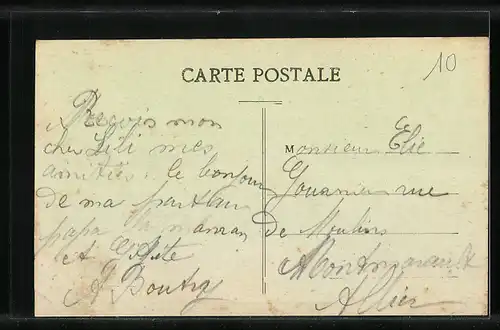 CARTE POSTALE
10
Reçois mon
cher Lili mes
amitiés. le bonjour
de ma part au
papa la maman
et Gigite
A Boutry
Monsieur Elie
rue
de Moulins
Montmarault
Allier